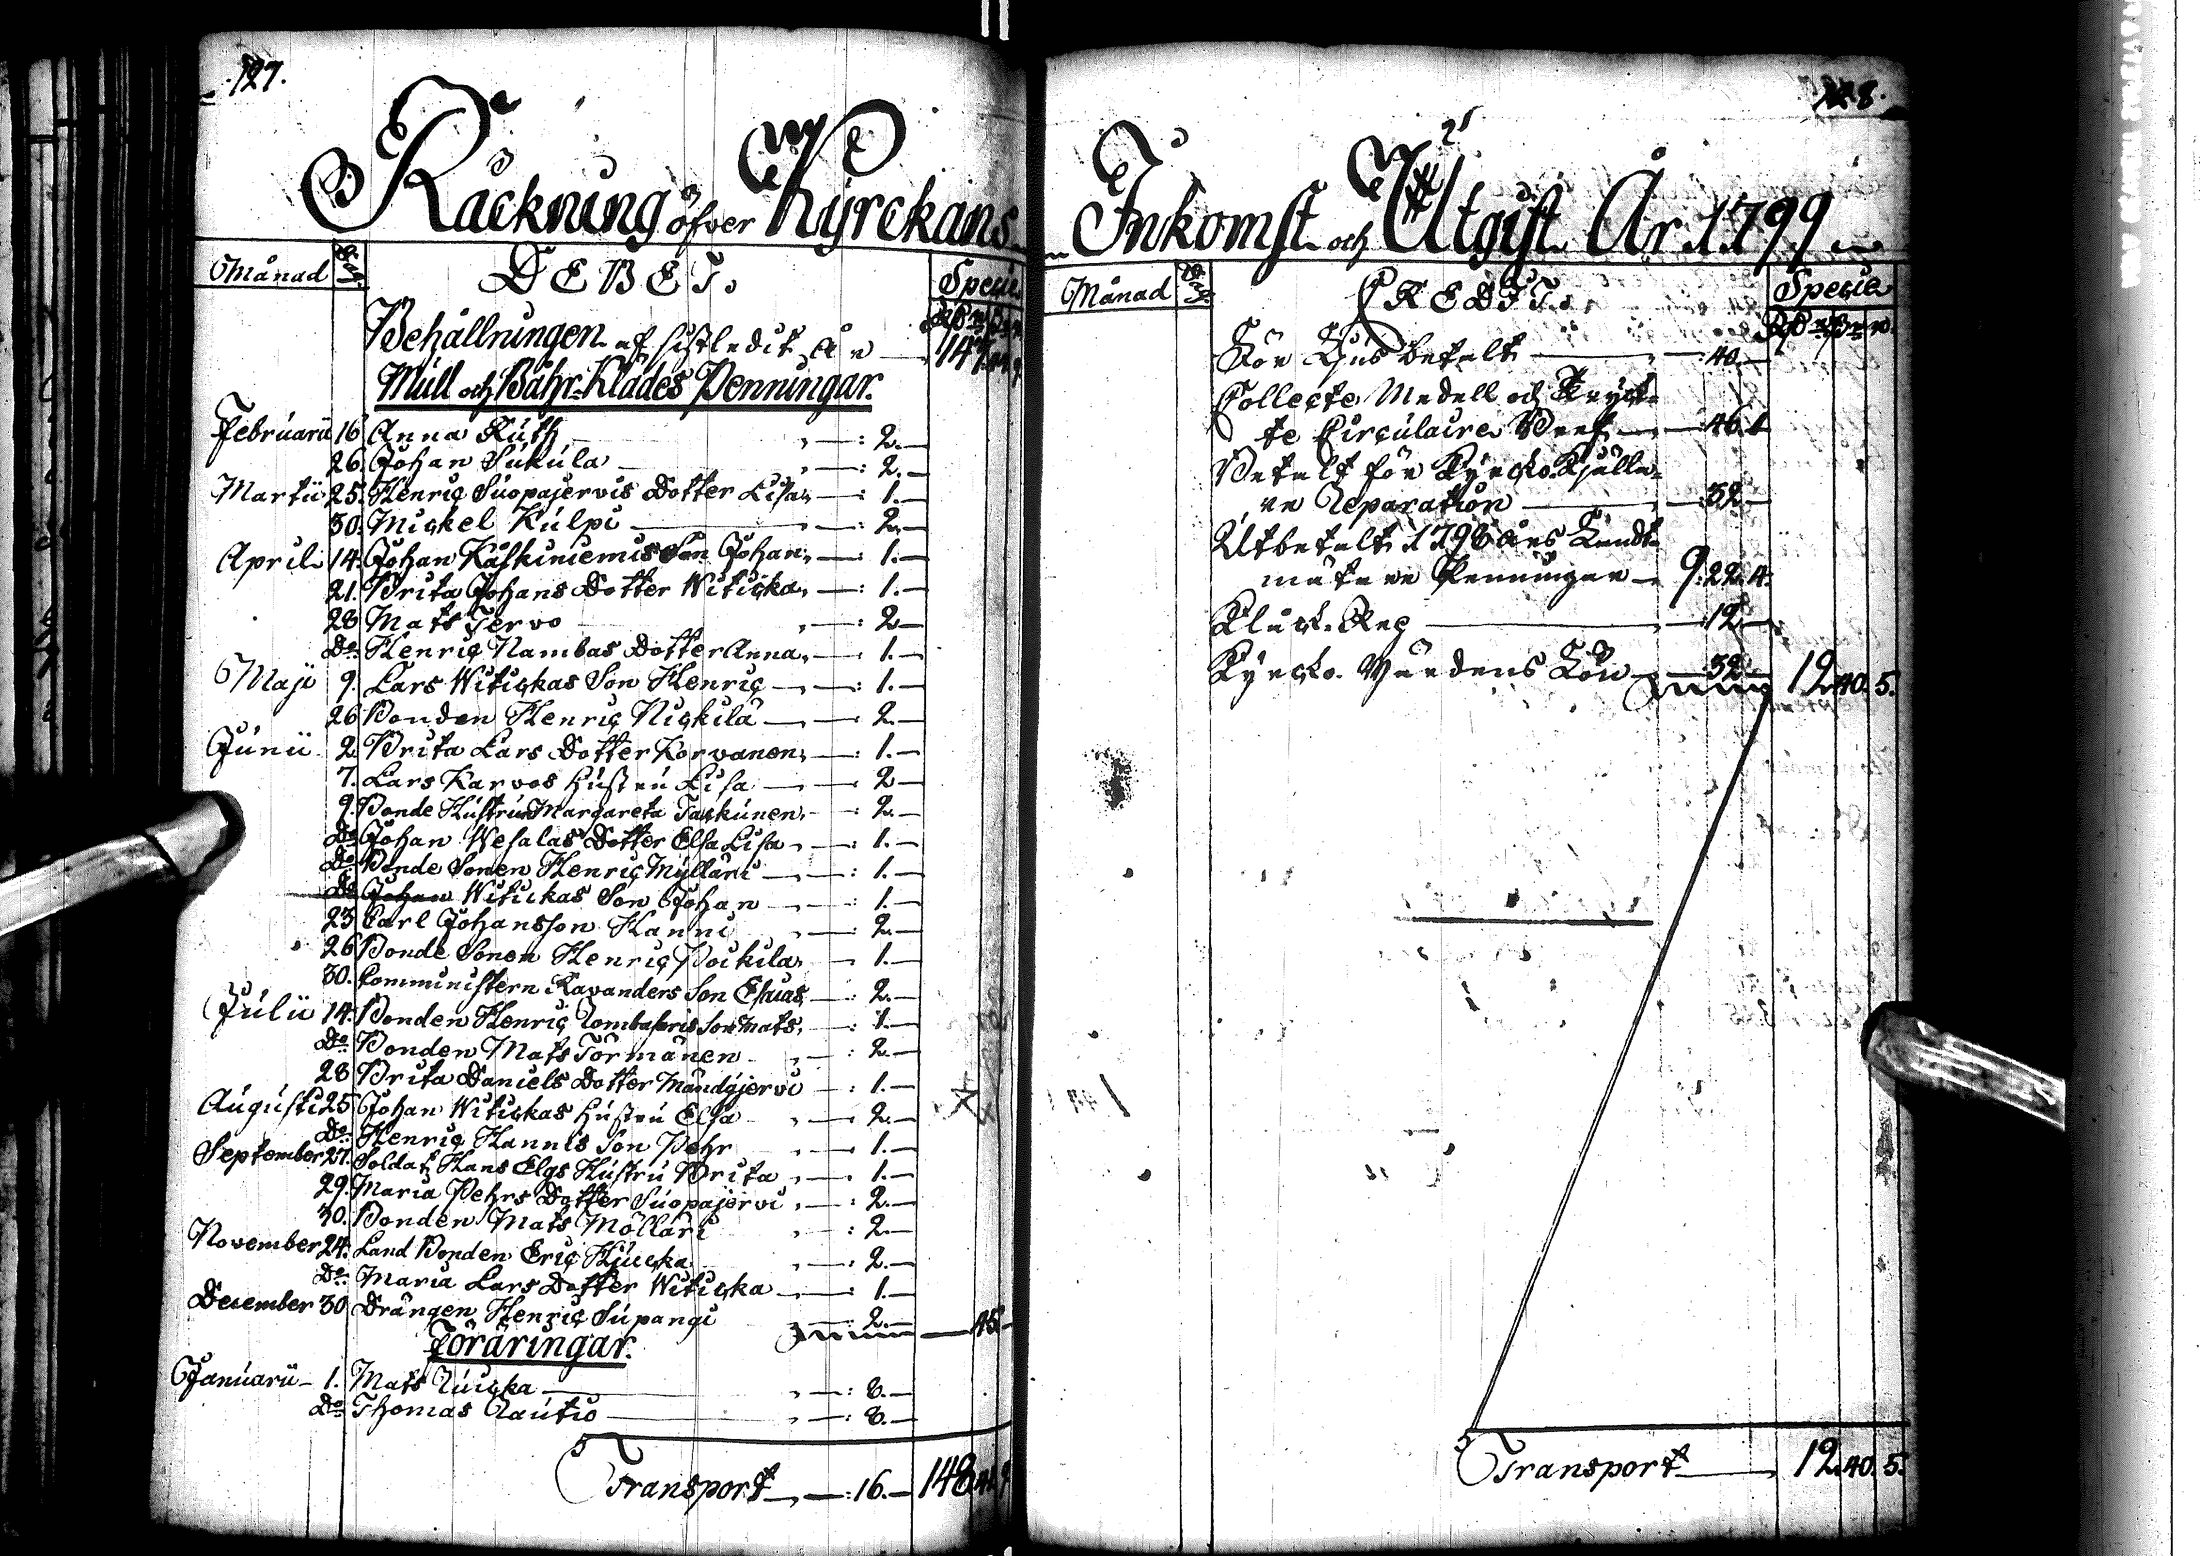 127.
Räckning öfver Kÿrckans
Månad Dag. DEBET. Specie
Rdr s. r.
Behållningen af sistledit År — 147.
Mull och Båhr-Klädes Penningar.
Februarii 16. Anna Ruth — 2.—
26. Johan Sukula — 2.—
Martii 25. Henric Suopajervis Dotter Lisa, — 1.—
30. Mickel Kulpi — 2.—
April 14. Johan Kåskiniemis Son Johan, — 1.—
21. Brita Johans Dotter Witicka, — 1.—
28 Mats Tervo — 2.—
Do. Henric Nambas Dotter Anna, — 1.—
Maji 9. Lars Witickas Son Henric — 1.—
26 Bonden Henric Nickilä — 2.—
Junii 2. Brita Lars Dotter Korvanen, — 1.—
7. Lars Karvos Hustru Lisa — 2.—
9. Bonde Hustrun Margareta Taskinen, — 2.—
Do Johan Wesalas Dotter Elsa Lisa — 1.—
Do. Bonde Sonen Henric Mÿlläri — 1.—
Do Johan Witickas Son Johan — 1.—
23 Carl Johansson Hanni — 2.—
26 Bonde Sonen Henric Poikila, — 1.—
30. Comministern Ravanders Son Esaias — 2.—
Julii 14. Bonden Henric Rombasaris Son Mats, — 1.—
Do. Bonden Mats Törmänen — 2.—
28 Brita Daniels Dotter Mändÿjervi — 1.—
Augusti 25 Johan Witickas Hustru Elsa — 2.—
Do. Henric Hannis Son Pehr — 1.—
September 27. Soldat. Hans Elgs Hustru Brita — 1.—
29. Maria Pehrs Dotter Suopajervi — 2.—
30. Bonden Mats Mölläri — 2.—
November 24. Land Bonden Eric Hjucka — 2.—
Do. Maria Lars Dotter Witicka — 1.—
December 30 Drängen Henric Supangi — 2.—
— 45.—
Föräringar.
Januarii 1. Mats Ruicka — 8.—
Do. Thomas Rautio — 8.—
Transport — 16.— 148.
128.
Inkomst och Utgift År 1799
Månad Dag. CREDIT. Specie
Rdr s. r.
För Ljus betalt — 40.—
Collecte Medell och Tryck-
te Circulaire Bref — 46.1
Betalt för Kÿrcko Kjälla-
re Reparation — 32.—
Utbetalt 1798 års Landt-
mätare Penningar — 9.22.4.
Kluck. Reg — 12.—
Kÿrcko Wärdens Lön — 32.— 12.40.5.
Transport — 12.40.5.